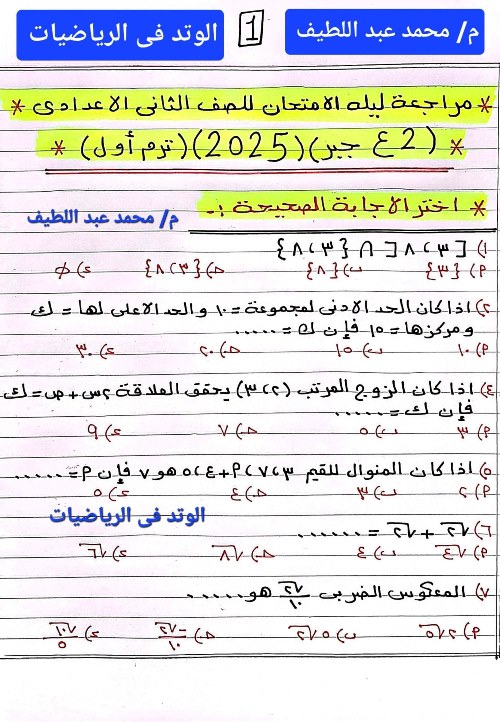 م/ محمد عبد اللطيف 1 الوتد فى الرياضيات
* مراجعة ليله الامتحان للصف الثانى الاعدادى *
* (2ع جبر)(2025)(ترم أول) *
* اختر الاجابة الصحيحة :ـ م/ محمد عبد اللطيف
١) [٣، ٨[ ∩ {٣، ٨}
P) {٣} ب) {٨} جـ) {٣، ٨} د) ϕ
٢) اذا كان الحد الادنى لمجموعة = ١٠ والحد الاعلى لها = ك
ومركزها = ١٥ فإن ك = ......
P) ١٠ ب) ١٥ جـ) ٢٠ د) ٣٠
٤) اذا كان الزوج المرتب (٢، ٣) يحقق العلاقة ٢س + ص = ك
فإن ك = ......
P) ٣ ب) ٥ جـ) ٧ د) ٩
٥) اذا كان المنوال للقيم ٣، ٧، P + ٤، ٥ هو ٧ فإن P = ......
P) ٢ ب) ٣ جـ) ٤ د) ٥
الوتد فى الرياضيات
٦) √٢ + √٢ = ......
P) √٤ ب) ٤ جـ) √٨ د) √٦
٧) المعكوس الضربى √٢/١٠ هو ......
P) ٥√٢ ب) ٢√٥ جـ) -√٢/١٠ د) √١٠/٥